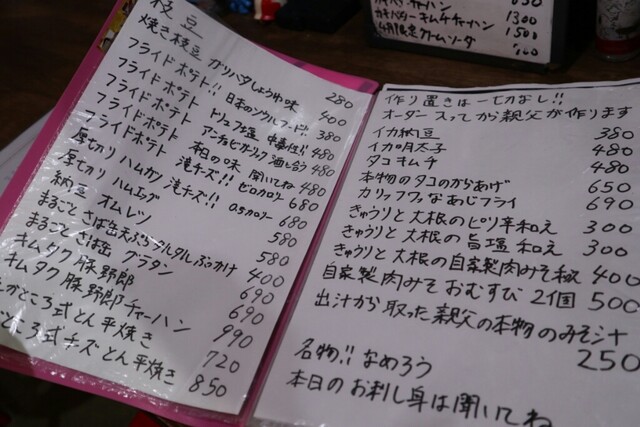 枝豆 280
焼き枝豆 ガリバタしょうゆ味 400
フライドポテト!! 日本のソウルフード!! 380
フライドポテト トリュフ塩 480
フライドポテト アンチョビガーリック 酒と合う 480
フライドポテト 本日の味 聞いてね 480
厚切り ハムカツ 滝チーズ!! ゼロカロリー 680
厚切り ハムエッグ 680
納豆 オムレツ 580
まるごと さば缶天ぷらタルタルぶっかけ 580
まるごと さば缶 グラタン 400
キムタク豚野郎 690
キムタク豚野郎チャーハン 690
ころ式 とん平焼き 720
ころ式 チーズとん平焼き 850
990
チャーハン
カキバターキムチチャーハン 1300
1500
クリームソーダ
作り置きは一切なし!!
オーダー入ってから親父が作ります
イカ納豆 380
イカ明太子 480
タコキムチ 480
本物のタコのからあげ 650
カリッフワッなあじフライ 690
きゅうりと大根のピリ辛和え 300
きゅうりと大根の旨塩和え 300
きゅうりと大根の自家製肉みそ 400
自家製肉みそおむすび 2個 500
出汁から取った親父の本物のみそ汁
250
名物!! なめろう
本日のお刺し身は聞いてね